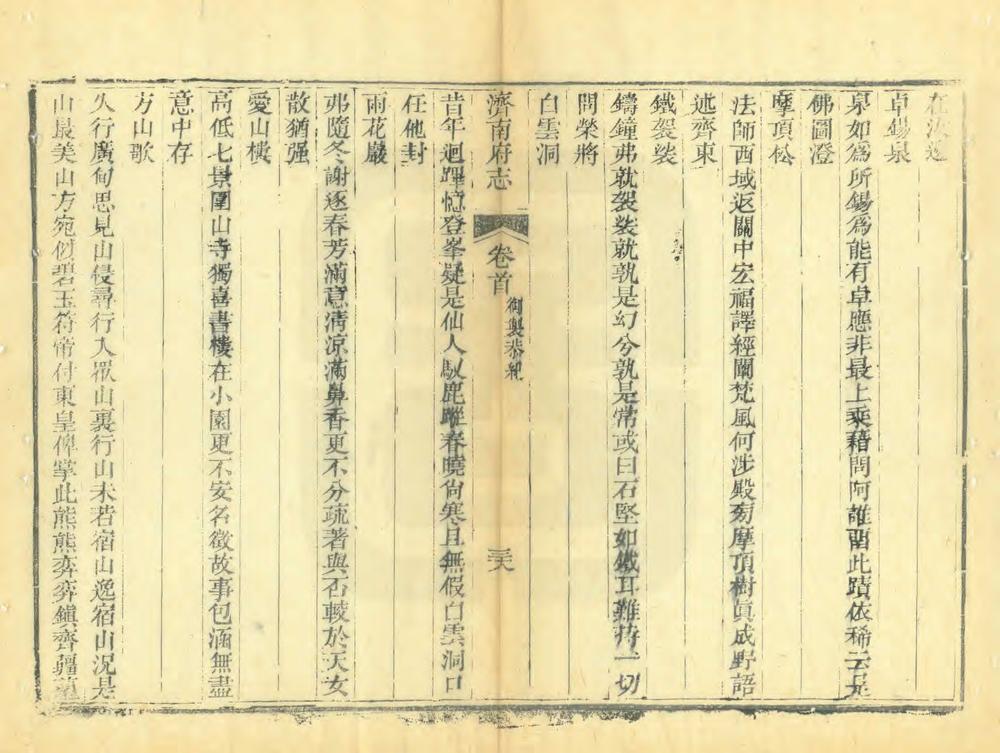 在汝邊
卓錫泉
泉如爲所錫爲能有卓應非最上乘藉問阿誰畱此蹟依稀云是
佛圖澄
摩頂松
法師西域返關中宏福譯經闡梵風何涉殿前摩頂樹眞成野語
述齊東
鐵袈裟
鑄鐘弗就袈裟就孰是幻兮孰是常或曰石堅如鐵耳難持一切
問榮將
白雲洞
濟南府志
卷首
御製恭紀
三大
昔年迴蹕憶登峯疑是仙人馭鹿蹤春曉尙寒且無假白雲洞口
任他封
雨花巖
弗隨冬謝逐春芳滿意清涼滿鼻香更不分疏著與否較於天女
散猶强
愛山樓
高低七景圍山寺獨喜書樓在小園更不安名徵故事包涵無盡
意中存
方山歌
久行廣甸思見山侵尋行入衆山裏行山未若宿山逸宿山況是
山最美山方宛似碧玉符帝付東皇俾掌此熊熊奕奕鎭齊疆